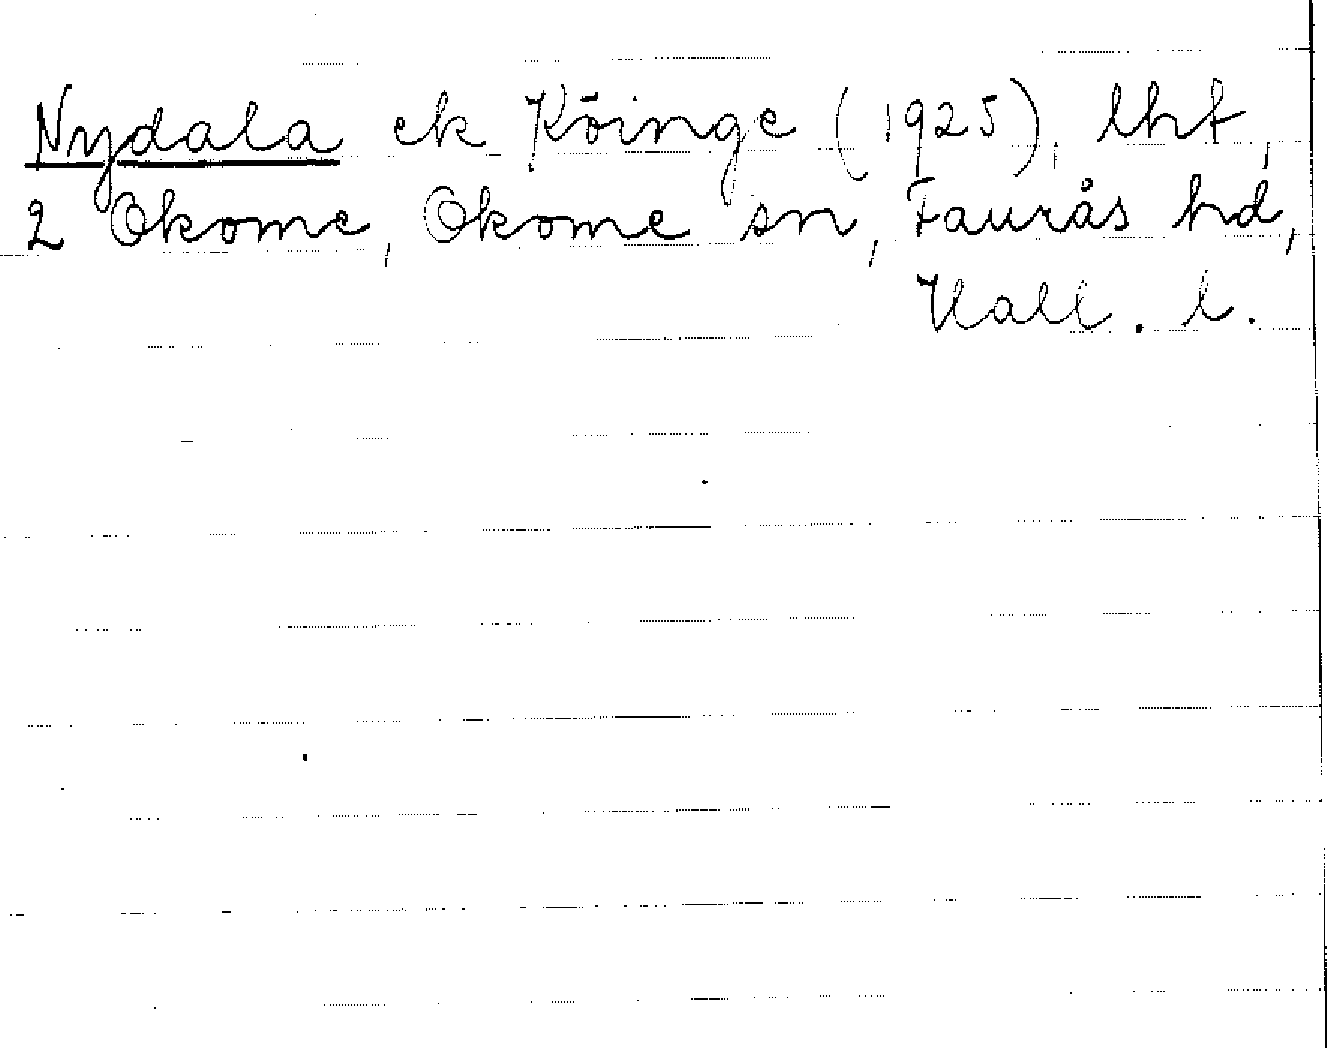 Nydala ek Köinge (1925), lht,
2 Okome, Okome sn, Faurås hd,
Hall. l.